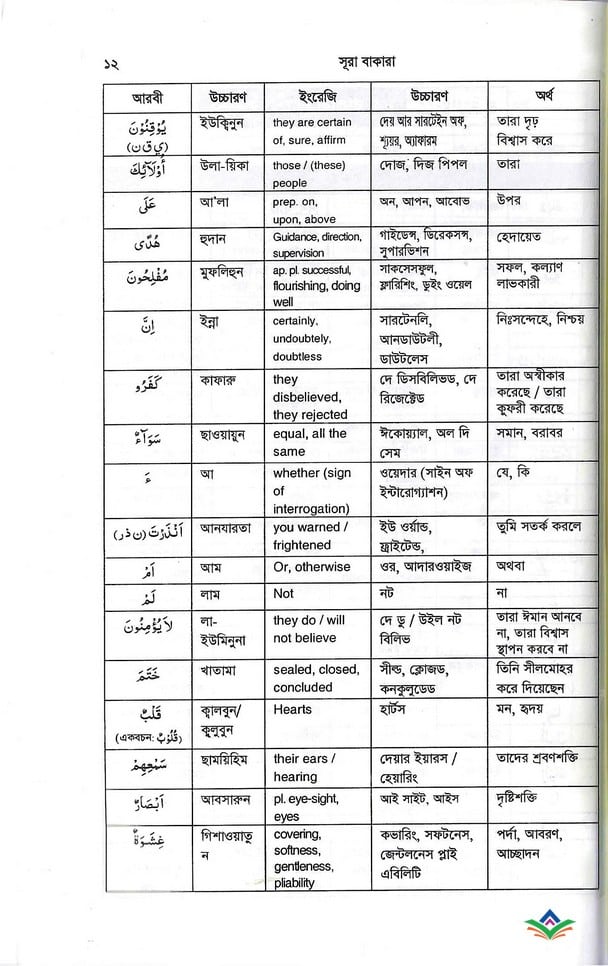 ১২ সূরা বাকারা
আরবী উচ্চারণ ইংরেজি উচ্চারণ অর্থ
يُوْقِنُوْنَ ইউক্বিনুন they are certain দেয় আর সারটেইন অফ, তারা দৃঢ়
(ي ق ن) of, sure, affirm শ্যূয়র, অ্যাফারম বিশ্বাস করে
أُولَآئِكَ উলা-য়িকা those / (these) দোজ, দিজ পিপল তারা
people
عَلَى আ'লা prep. on, অন, আপন, আবোভ উপর
upon, above
هُدًى হুদান Guidance, direction, গাইডেন্স, ডিরেকসন্স, হেদায়েত
supervision সুপারভিশন
مُفْلِحُوْنَ মুফলিহুন ap. pl. successful, সাকসেসফুল, সফল, কল্যাণ
flourishing, doing ফ্লারিশিং, ডুইং ওয়েল লাভকারী
well
إِنَّ ইন্না certainly, সারটেনলি, নিঃসন্দেহে, নিশ্চয়
undoubtely, আনডাউটলী,
doubtless ডাউটলেস
كَفَرُو কাফারু they দে ডিসবিলিভড, দে তারা অস্বীকার
disbelieved, রিজেক্টেড করেছে / তারা
they rejected কুফরী করেছে
سَوَآءٌ ছাওয়ায়ুন equal, all the ঈকোয়্যাল, অল দি সমান, বরাবর
same সেম
ءَ আ whether (sign ওয়েদার (সাইন অফ যে, কি
of ইন্টারোগ্যাশন)
interrogation)
اَنْذَرْتَ (ن ذ ر) আনযারতা you warned / ইউ ওর্য়ান্ড, তুমি সতর্ক করলে
frightened ফ্রাইটেন্ড,
اَمْ আম Or, otherwise ওর, আদারওয়াইজ অথবা
لَمْ লাম Not নট না
لاَيُؤْمِنُوْنَ লা- they do / will দে ডু / উইল নট তারা ঈমান আনবে
ইউমিনুনা not believe বিলিভ না, তারা বিশ্বাস
স্থাপন করবে না
خَتَمَ খাতামা sealed, closed, সীল্ড, ক্লোজড, তিনি সীলমোহর
concluded কনক্লুডেড করে দিয়েছেন
قَلْبٌ ক্বালবুন/ Hearts হার্টস মন, হৃদয়
(একবচন: قُلُوْبٌ) কুলুবুন
سَمْعِهِمْ ছাময়িহিম their ears / দেয়ার ইয়ারস / তাদের শ্রবণশক্তি
hearing হেয়ারিং
اَبْصَارٌ আবসারুন pl. eye-sight, আই সাইট, আইস দৃষ্টিশক্তি
eyes
غِشَوَةٌ গিশাওয়াতু covering, কভারিং, সফটনেস, পর্দা, আবরণ,
ন softness, জেন্টলনেস প্লাই আচ্ছাদন
gentleness, এবিলিটি
pliability